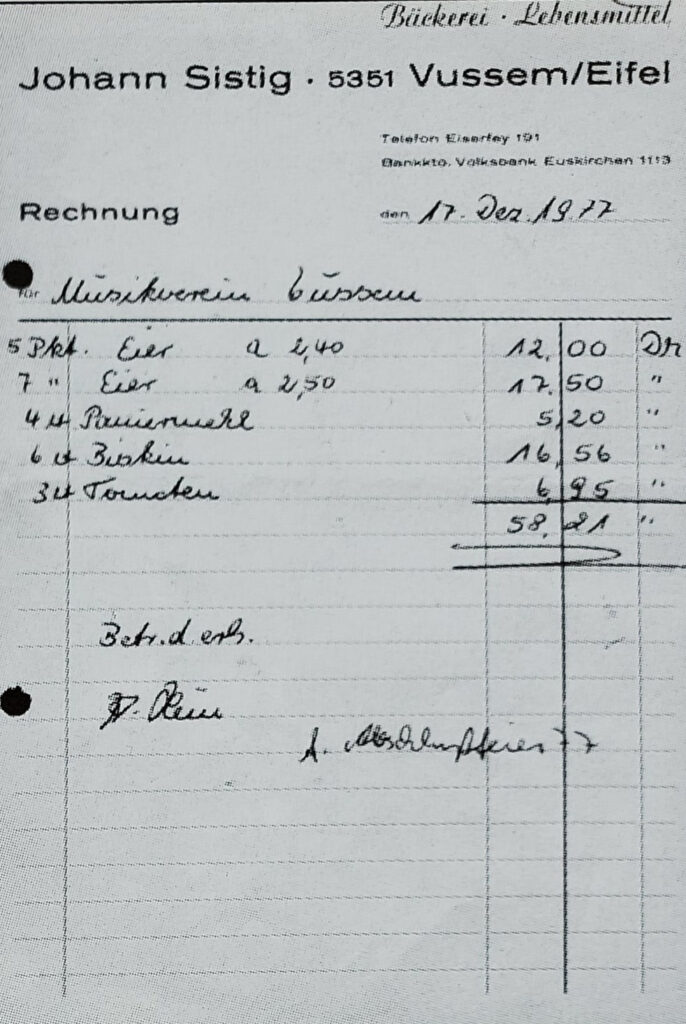 Bäckerei · Lebensmittel
Johann Sistig · 5351 Vussem/Eifel
Telefon Eiserfey 191
Bankkto. Volksbank Euskirchen 1113
Rechnung den 17. Dez. 1977
für Musikverein Vussem
5 Pkt. Eier a 2,40 12,00 DM
7 " Eier a 2,50 17,50 "
4 Paniermehl 5,20 "
6 Biskin 16,56 "
3 Tomaten 6,95 "
58,21 "
Betr. d. erh.
Klein
f. Abschlußfeier 77